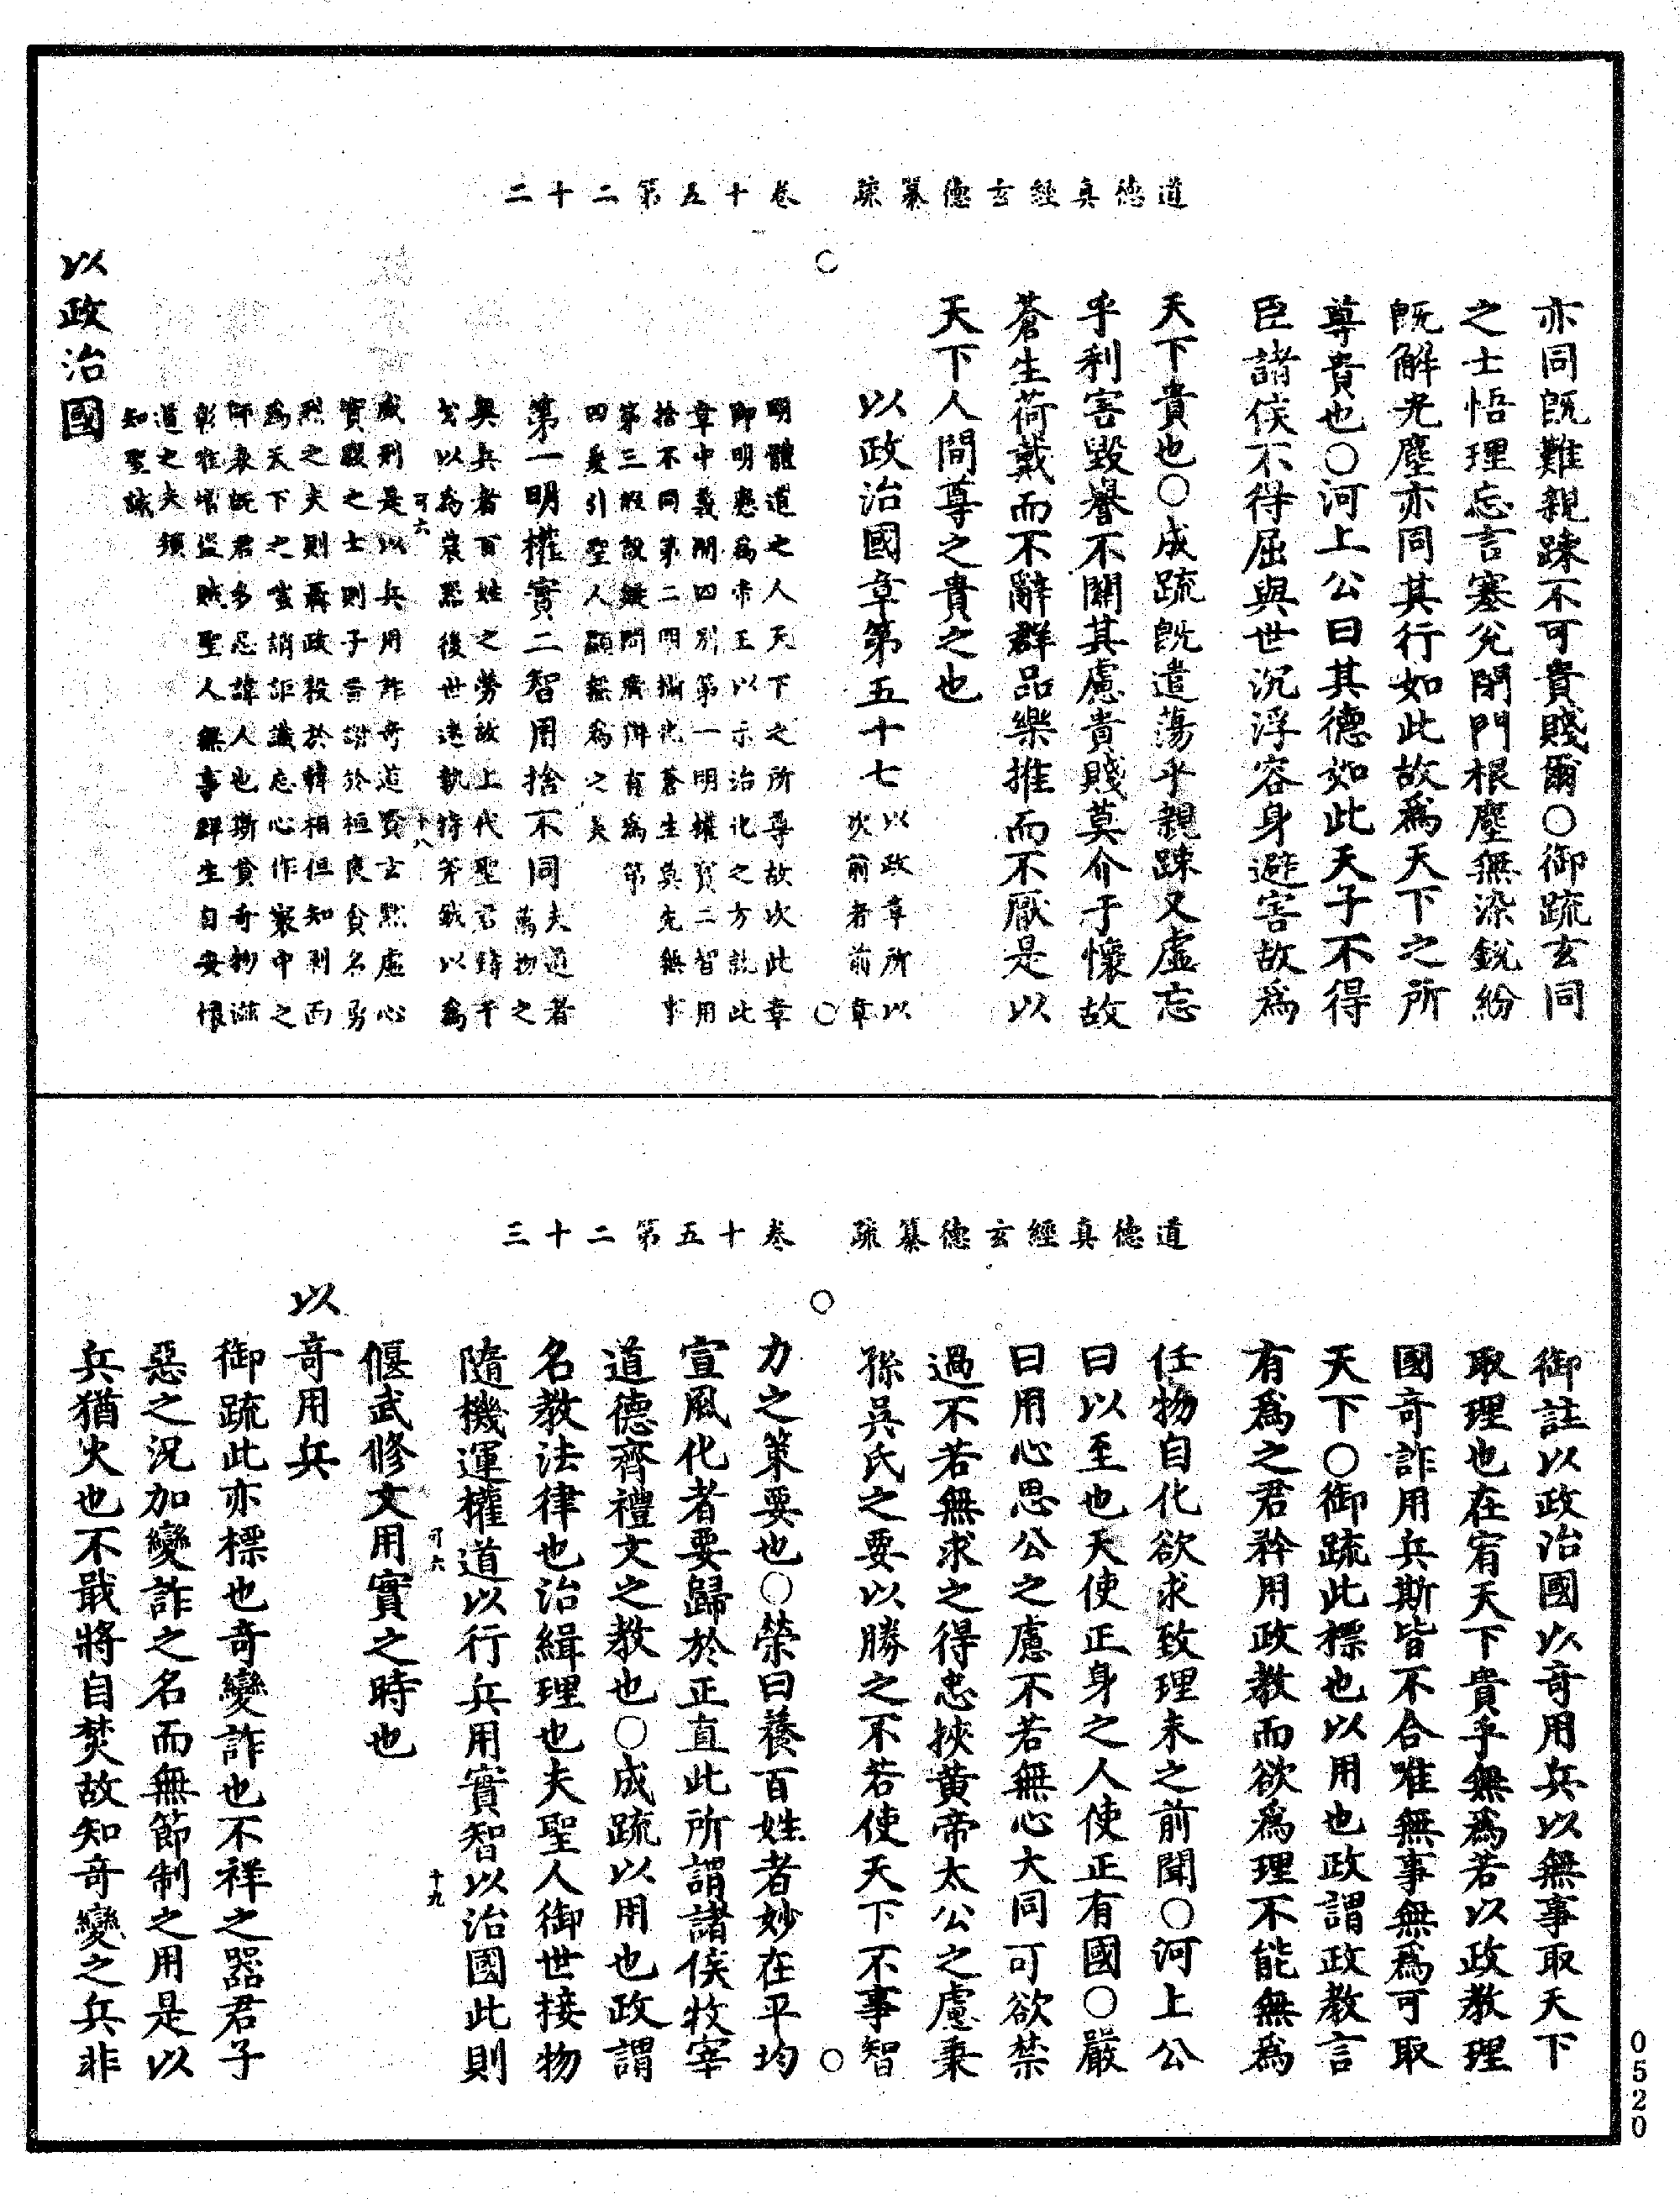 道德真經玄德纂疏　卷十五第二十二
亦同旣難親踈不可貴賤爾○御疏玄同
之士悟理忘言塞兌閉門根塵無染銳紛
旣解光塵亦同其行如此故爲天下之所
尊貴也○河上公曰其德如此天子不得
臣諸侯不得屈與世沉浮容身避害故爲
天下貴也○成疏旣遣蕩乎親踈又虛忘
乎利害毀譽不關其慮貴賤莫介于懷故
蒼生荷戴而不辭群品樂推而不厭是以
天下人間尊之貴之也
以政治國章第五十七
以政章所以
次前者前章
明體道之人天下之所尊故次此章
即明應爲帝王以示治化之方就此
章中義開四別第一明權實二智用
捨不同第二明撫化蒼生莫先無事
第三假設疑問廣開有爲第
四爰引聖人顯無爲之美
第一明權實二智用捨不同
夫道者
萬物之
奧兵者百姓之勞故上代聖君鑄干
戈以爲農器後世迷執持茅戟以爲
可六
十八
威刑是以兵用詐奇道貴玄默虛心
實腹之士則子晉謝於桓良負名勇
烈之夫則聶政殺於韓相但知剋而
爲天下之嗤誚詎識忘心作寰中之
師哀旣君多忌諱人也斯貧奇物滋
彰唯增盜賊聖人無事群生自安恨
道之夫須
知聖誡
以政治國
道德真經玄德纂疏　卷十五第二十三
御註以政治國以奇用兵以無事取天下
取理也在宥天下貴乎無爲若以政教理
國奇詐用兵斯皆不合唯無事無爲可取
天下○御疏此標也以用也政謂政教言
有爲之君矜用政教而欲爲理不能無爲
任物自化欲求致理未之前聞○河上公
曰以至也天使正身之人使正有國○嚴
曰用心思公之慮不若無心大同可欲禁
過不若無求之得忠挾黃帝太公之慮秉
孫吳氏之要以勝之不若使天下不事智
力之策要也○榮曰養百姓者妙在平均
宣風化者要歸於正直此所謂諸侯牧宰
道德齊禮文之教也○成疏以用也政謂
名教法律也治緝理也夫聖人御世接物
隨機運權道以行兵用實智以治國此則
可六
十九
偃武修文用實之時也
以奇用兵
御疏此亦標也奇變詐也不祥之器君子
惡之況加變詐之名而無節制之用是以
兵猶火也不戢將自焚故知奇變之兵非
0520